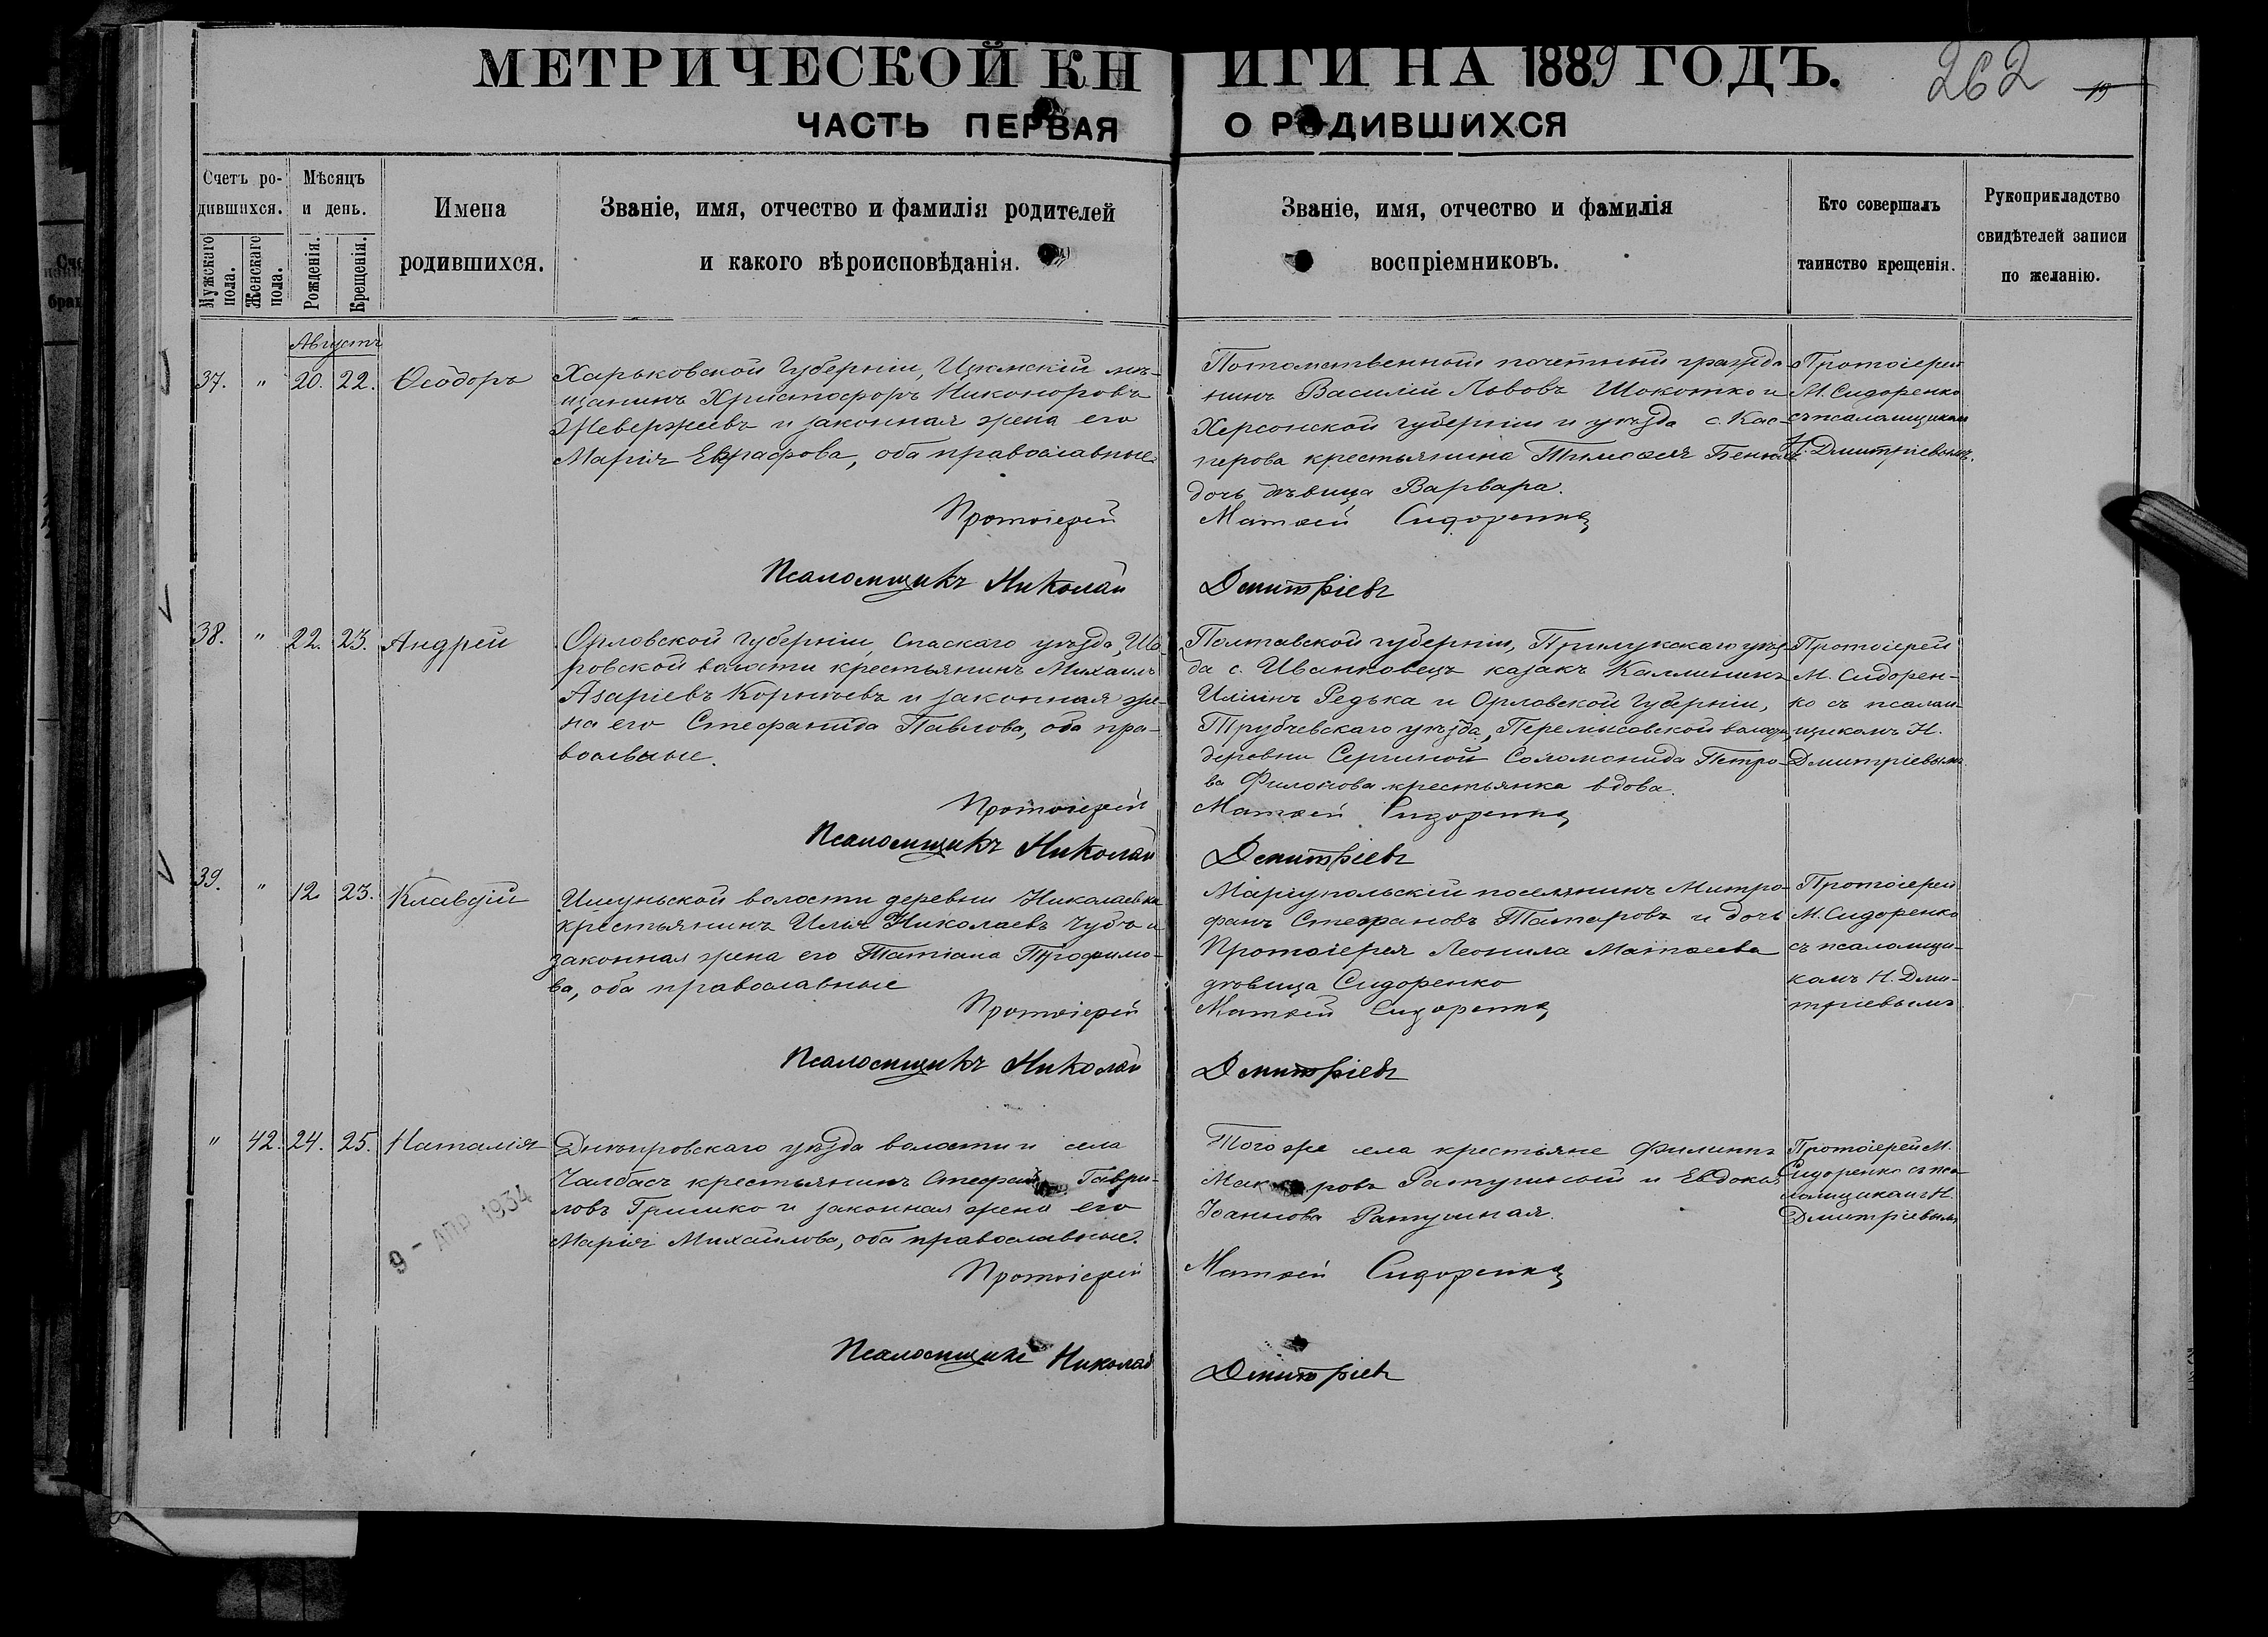 МЕТРИЧЕСКОЙ КНИГИ НА 1889 ГОДЪ.
262
ЧАСТЬ ПЕРВАЯ О РОДИВШИХСЯ
Счетъ ро-
дившихся.
Мужскаго пола.
Женскаго пола.
Мѣсяцъ
и день.
Рожденія.
Крещенія.
Имена
родившихся.
Званіе, имя, отчество и фамилія родителей
и какого вѣроисповѣданія.
Званіе, имя, отчество и фамилія
воспріемниковъ.
Кто совершалъ
таинство крещенія.
Рукоприкладство
свидѣтелей записи
по желанію.
Августъ
37. " 20. 22. Ѳеодоръ
Харьковской Губерніи, Изюмскій мѣ-
щанинъ Христофоръ Никоноровъ
и законная жена его
Марія Евграфова, оба православные.
Потомственный почетный гражда-
нинъ Василій Львовъ Шокотко и
Херсонской губерніи и уѣзда с. Кас-
перова крестьянина Тимоѳея
дочь дѣвица Варвара.
Протоіерей
М. Сидоренко
съ псаломщикомъ
Н. Дмитріевымъ.
Протоіерей Матѳей Сидоренко
Псаломщикъ Николай Дмитріевъ
38. " 22. 23. Андрей
Орловской губерніи, Спаскаго уѣзда,
ровской волости крестьянинъ Михаилъ
Азаріевъ Корнѣевъ и законная же-
на его Стефанида Павлова, оба пра-
вослвные.
Полтавской губерніи, Прилукскаго уѣз-
да с. Иванковецъ казакъ Каллиникъ
Иліинъ Редька и Орловской Губерніи,
Трубчевскаго уѣзда, волости,
деревни Соломонида Петро-
ва Филонова крестьянка вдова.
Протоіерей
М. Сидорен-
ко съ псалом-
щикомъ Н.
Дмитріевымъ
Протоіерей Матѳей Сидоренко
Псаломщикъ Николай Дмитріевъ
39. " 12. 23. Клавдій
волости деревни Николаевки
крестьянинъ Илія Николаевъ Чубъ и
законная жена его Татіана Трофимо-
ва, оба православные
Маріупольскій поселянинъ Митро-
фанъ Стефановъ Татаровъ и дочь
Протоіерея Леонила Матѳеева
дѣвица Сидоренко
Протоіерей
М. Сидоренко
съ псаломщи-
комъ Н. Дми-
тріевымъ
Протоіерей Матѳей Сидоренко
Псаломщикъ Николай Дмитріевъ
" 42. 24. 25. Наталія
Днѣпровскаго уѣзда волости и села
Чалбасъ крестьянинъ Стефанъ Гаври-
ловъ Гришко и законная жена его
Марія Михаилова, оба православные.
Того же села крестьяне Филиппъ
Макаровъ Ратушный и Евдокія
Іоаннова Ратушная.
Протоіерей М.
Сидоренко съ пса-
ломщикомъ Н.
Дмитріевымъ
9 - АПР 1934
Протоіерей Матѳей Сидоренко
Псаломщикъ Николай Дмитріевъ